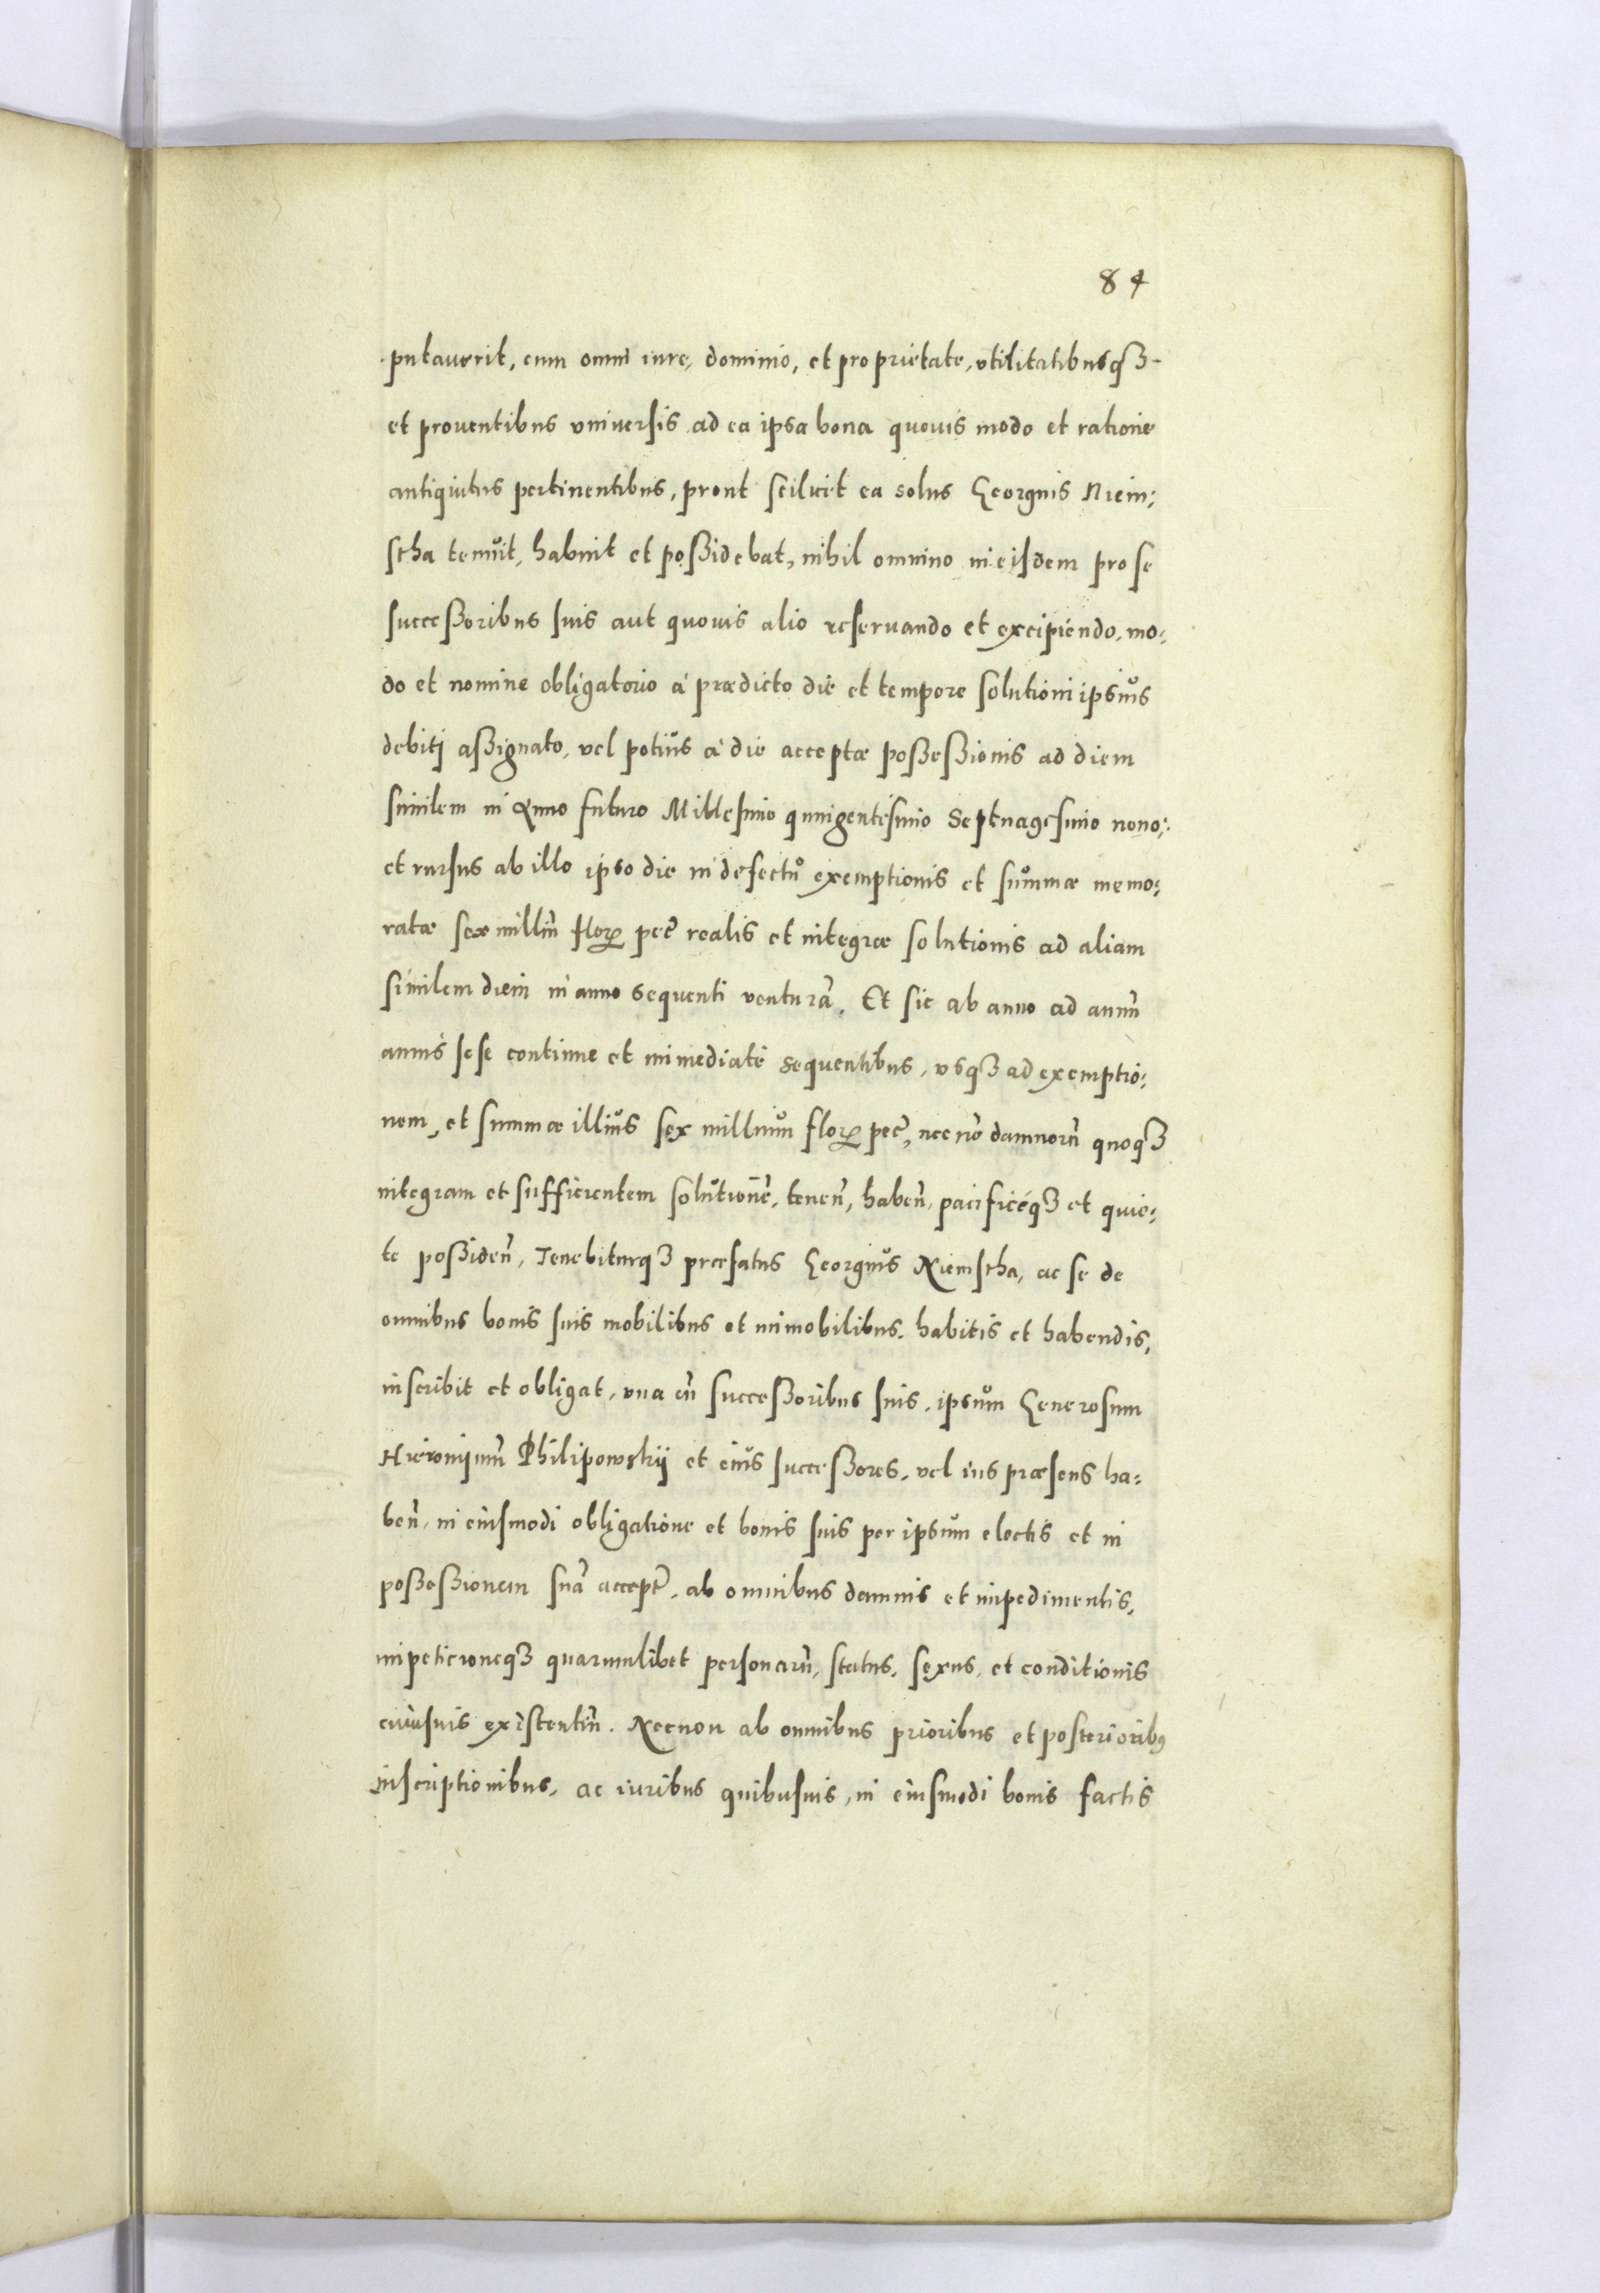 84
putauerit, cum omni iure, dominio, et proprietate, vtilitatibusq3
et prouentibus vniuersis ad ea ipsa bona quouis modo et ratione
antiquitus pertinentibus, prout scilicet ea solus Georgius Niem:
stha tenuit, habuit et possidebat, nihil omnino in eisdem pro se
successoribus suis aut quouis alio reseruando et excipiendo, mo:
do et nomine obligatorio à prædicto die et tempore solutioni ipsius
debiti assignato, vel potius à die acceptæ possessionis ad diem
similem in Anno futuro Millesimo quingentesimo Septuagesimo nono:
et rursus ab illo ipso die in defectu exemptionis et summæ memo:
ratæ sex milliū floꝝ pec̄ realis et integræ solutionis ad aliam
similem diem in anno sequenti venturā. Et sic ab anno ad annū
annis sese continue et immediatè sequentibus, vsq3 ad exemptio:
nem, et summæ illius sex millium floꝝ pec̄, necnō damnorū quoq3
integram et sufficientem solutionē, tenen̄, haben̄, pacificèq3 et quie:
te possiden̄, Tenebiturq3 præfatus Georgius Niemstha, ac se de
omnibus bonis suis mobilibus et immobilibus, habitis et habendis,
inscribit et obligat, vna cū successoribus suis, ipsum Generosum
Hieronijmū Philipowskij et eius successores, vel ius præsens ha:
ben̄, in eiusmodi obligatione et bonis suis per ipsum electis et in
possessionem suā accept̄, ab omnibus damnis et impedimentis,
impeticioneq3 quarumlibet personarū, status, sexus, et conditionis
cuiusuis existentiū. Necnon ab omnibus prioribus et posterioribꝰ
inscriptionibus, ac iuribus quibusuis, in eiusmodi bonis factis